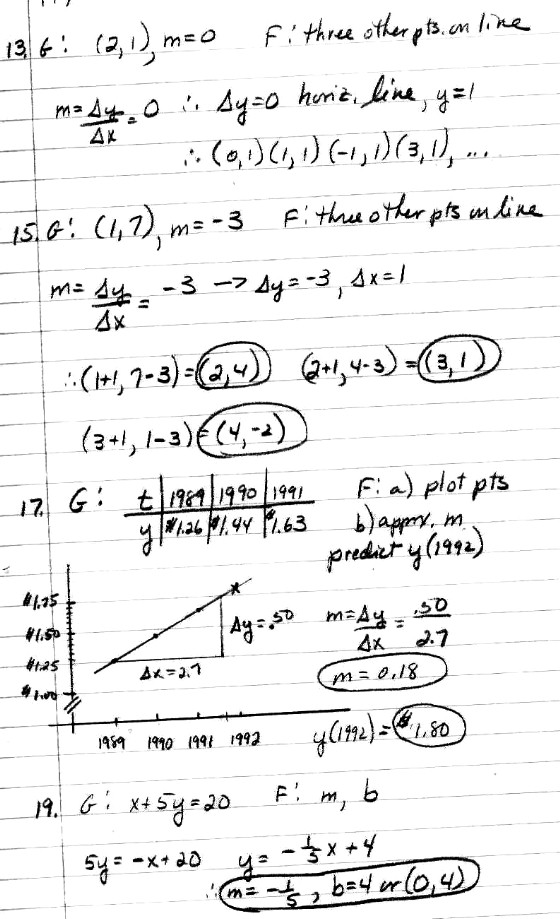 13. G: (2,1), m=0 F: three other pts. on line
m = Δy/Δx = 0 ∴ Δy=0 horiz. line, y=1
∴ (0,1) (1,1) (-1,1) (3,1), ...
15. G: (1,7), m=-3 F: three other pts on line
m = Δy/Δx = -3 → Δy=-3, Δx=1
∴ (1+1, 7-3) = (2,4) (2+1, 4-3) = (3,1)
(3+1, 1-3) = (4,-2)
17. G: t 1989 1990 1991 F: a) plot pts
y $1.26 $1.44 $1.63 b) apprx. m
predict y(1992)
$1.75
$1.50
$1.25
$1.00
Δy=.50
Δx=2.7
1989 1990 1991 1992
m = Δy/Δx = .50/2.7
m = 0.18
y(1992) = $1.80
19. G: x+5y=20 F: m, b
5y = -x+20 y = -1/5 x + 4
∴ m = -1/5, b=4 or (0,4)